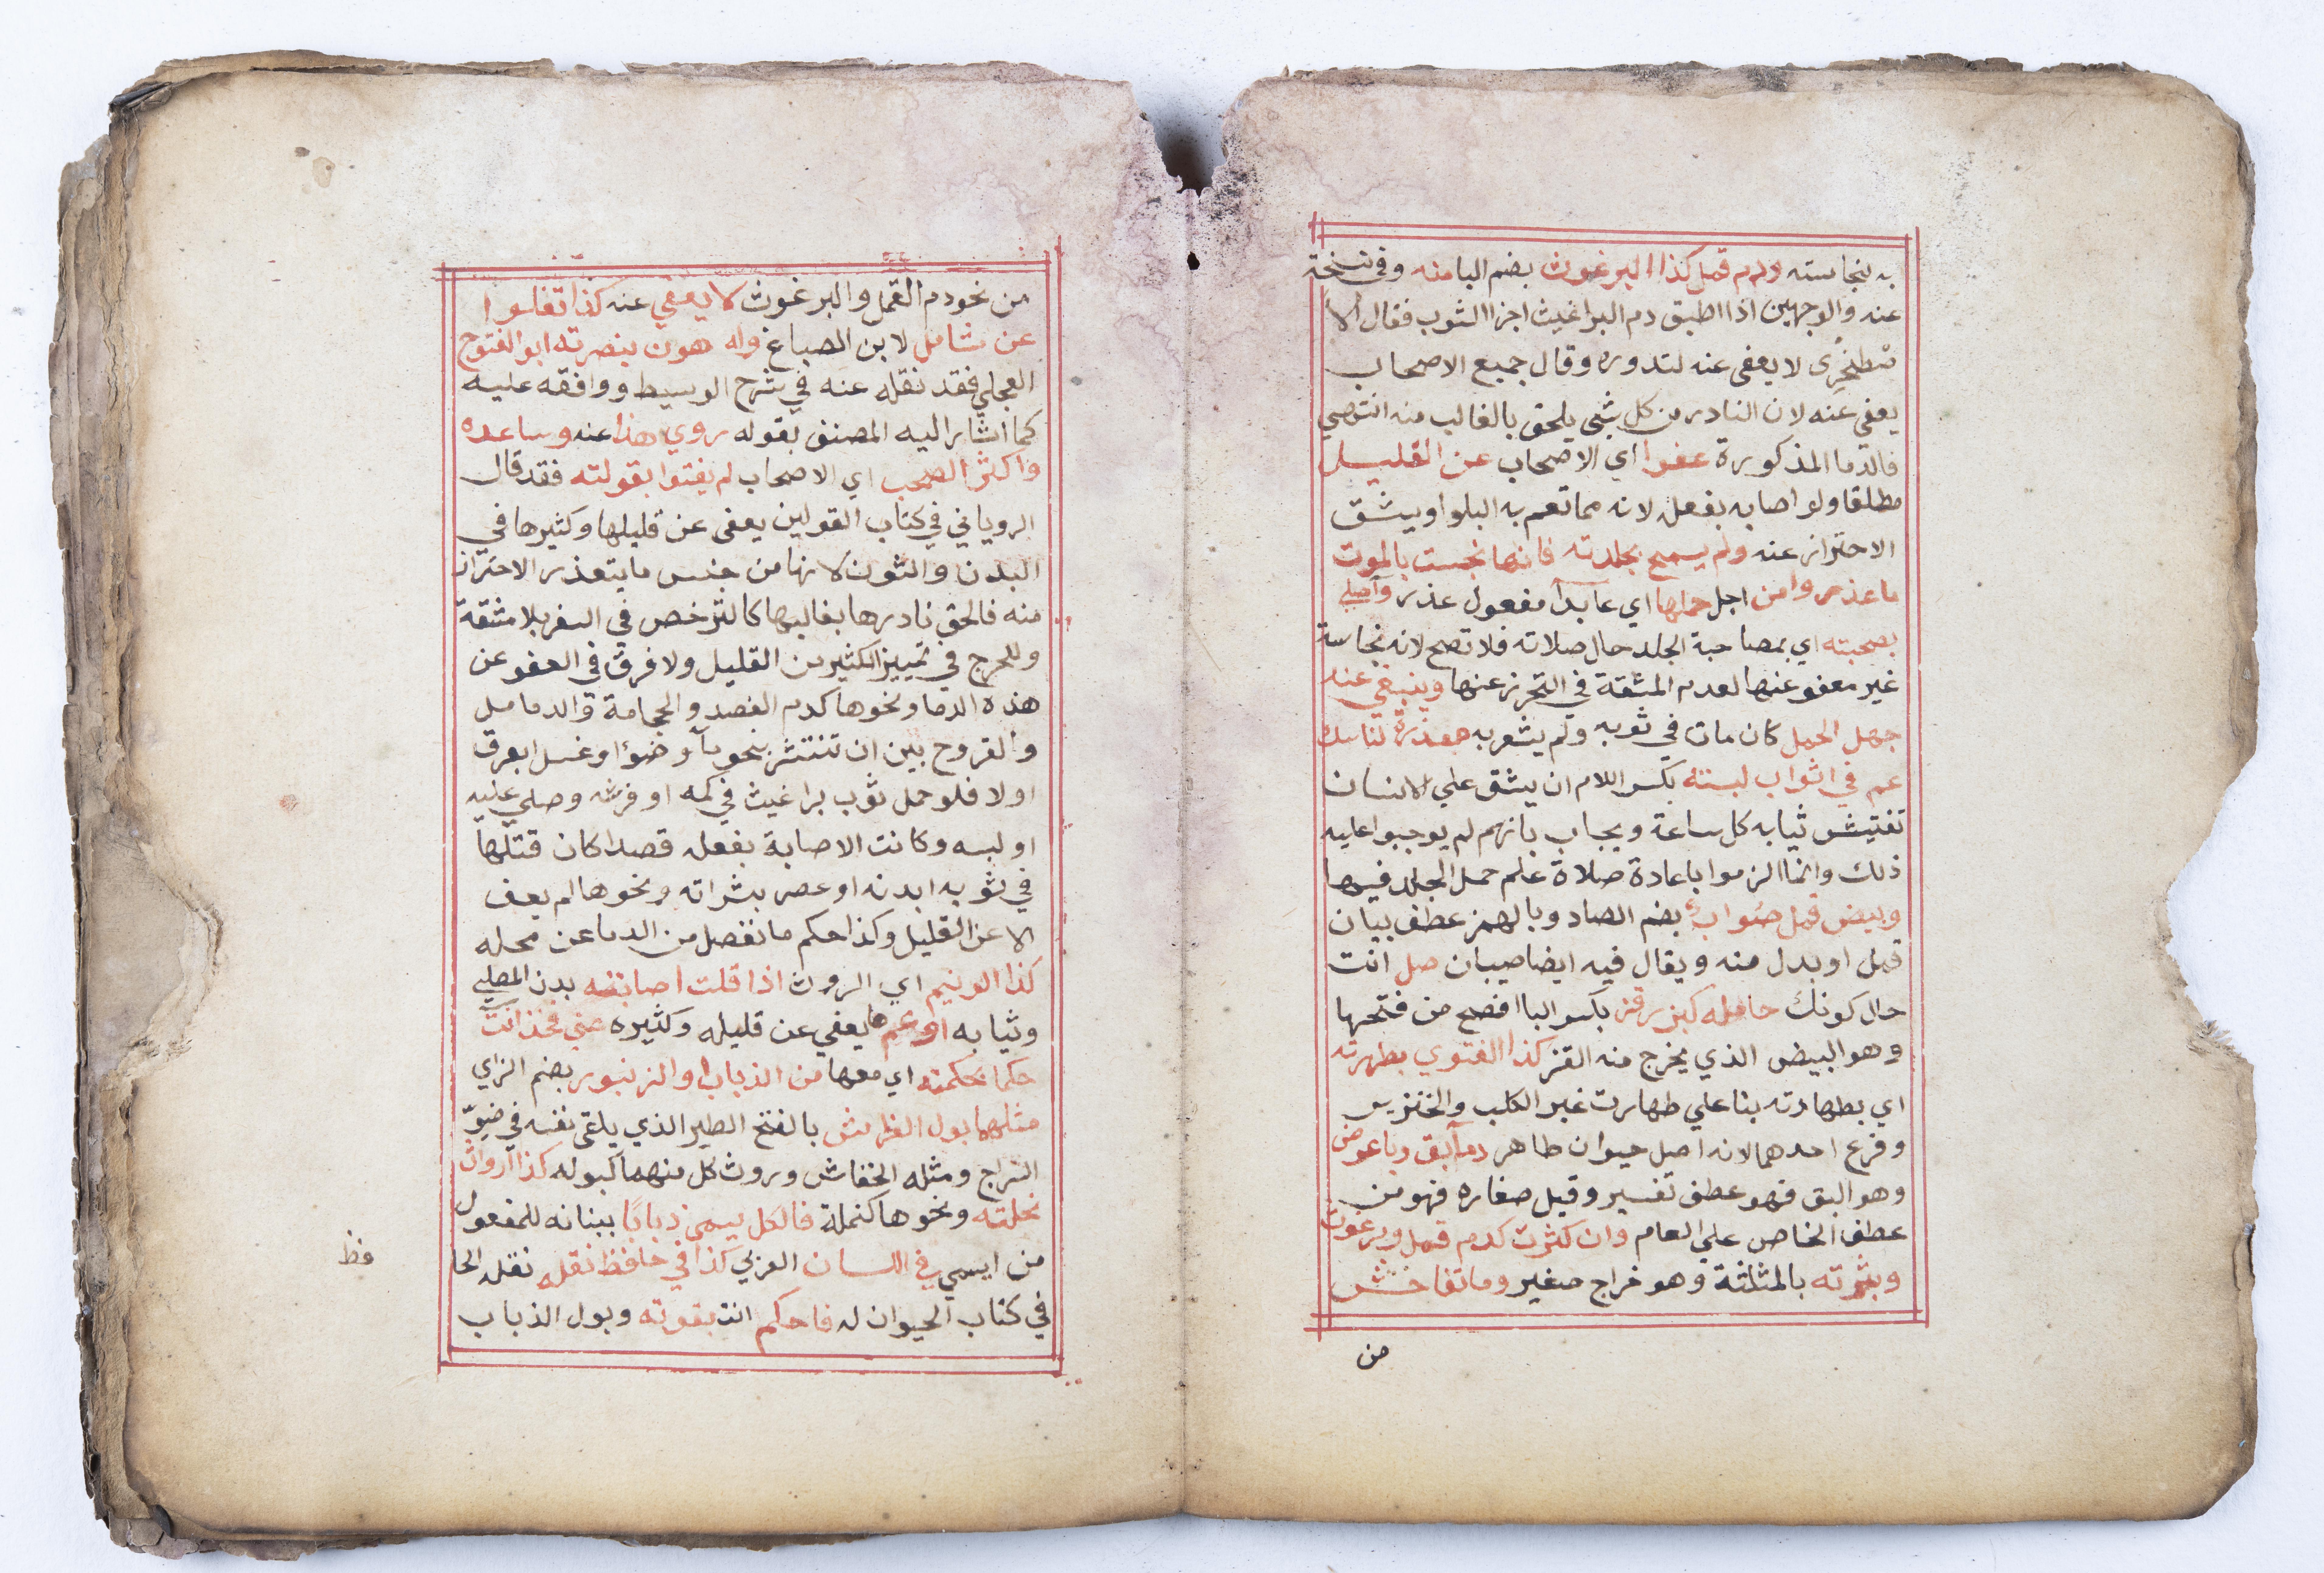 به بنجاسته ودم قمل كذا البرغوث بضم البا منه وفي نسخة
عنه والوجهين اذا اطبق دم البراغيث اجزا الثوب فقال الا
صْطخرِى لا يعفى عنه لندوره وقال جميع الاصحاب
يعفى عنه لان النادر من كل شئى يلحق بالغالب منه انتهى
فالدما المذكورة عفوا اي الاصحاب عن القليل
مطلقا ولو اصابه بفعله لانه مما تعم به البلوا ويشق
الاحتراز عنه ولم يسمح بجلدته فانها نجست بالموت
ما عذروا من اجل حملها اي عابدا مفعول عذر وآصلي
بصحبته اي بمصاحبة الجلد حال صلاته فلا تصح لانه نجاسة
غير معفو عنها لعدم المشقة في التحرز عنها وينبغي عند
جهل الحمل كان مات في ثوبه ولم يشعر به معذرة لناسك
عم في اثواب لبسته بكسر اللام ان يشق علي الانسان
تفتيش ثيابه كل ساعة ويجاب بانهم لم يوجبوا عليه
ذلك وانما الزموا باعادة صلاة علم حمل الجلد فيها
وبيض قمل صُواب بضم الصاد وبالهمز عطف بيان
قمل او بدل منه ويقال فيه ايضا صيبان صل انت
حال كونك حامله كبزر قز بكسر البا افصح من فتحها
وهو البيض الذي يخرج منه القز كذا الفتوي بطهرته
اي بطهارته بنا علي طهارت غير الكلب والخنزير
وفرع احدهما لانه اصل حيوان طاهر دمآبق وباعوض
وهو البق فهو عطف تفسير وقيل صغاره فهو من
عطف الخاص علي العام وان كثرت كدم قمل وبرغوث
وبثرته بالمثلثة وهو خراج صغير وما تفاحش
من
من نحو دم القمل والبرغوث لا يعفي عنه كذا تقلوا
عن شامل لابن الصباغ وله هون بنصرته ابو الفتوح
العجلي فقد نقله عنه في شرح الوسيط ووافقه عليه
كما اشار اليه المصنف بقوله روي هذا عنه وساعده
واكثر الصحب اي الاصحاب لم يفتوا بقولته فقد قال
الروياني في كتاب القولين يعفى عن قليلها وكثيرها في
البدن والثوب لانها من جنس ما يتعذر الاحتراز
منه فالحق نادرها بغالبها كالترخص في السفر بلا مشقة
وللحرج في تمييز الكثير من القليل ولا فرق في العفو عن
هذه الدما ونحوها كدم الفصد والحجامة والدمامل
والقروح بين ان تنتشر بنحو مآ وضوٴ او غسل او عرق
او لا فلو حمل ثوب براغيث في كمه او فرشه وصلي عليه
او لبسه وكانت الاصابة بفعله قصدا كان قتلها
في ثوبه ابدنه او عصر بثراته ونحوها لم يعف
الا عن القليل وكذا حكم ما نفصل من الدما عن محله
كذا الونيم اي الروث اذا قلت اصابته بدن المصلي
وثيابه او عم ها يعفي عن قليله وكثيره عني فخذ انت
حكما بحكمته اي معها من الذباب والزنبور بضم الزاي
مثلهما بول الفراش بالفتح الطير الذي يلقى نفسه في ضوّ
السراج ومثله الخفاش وروث كل منهما كبوله كذا ارواث
نحلته ونحوها كنملة فالكل يسمي ذبابًا ببنائه للمفعول
من ايسمي في اللسان العربي كذا في حافظ نقله نقله الحا
فظ
في كتاب الحيوان له فاحكم انت بقوته وبول الذباب